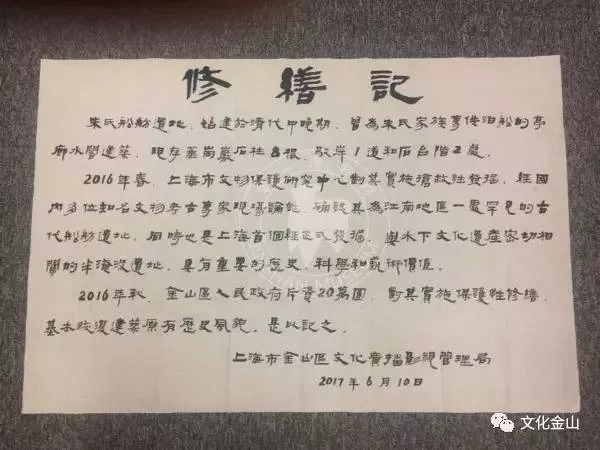 修繕記
朱氏船舫遺址，始建於清代中晚期，曾為朱氏家族專供泊船的亭
廊水閣建築，現存花崗巖石柱8根，駁岸1道和石台階2處。
2016年春，上海市文物保護研究中心對其實施搶救性發掘，經國
内多位知名文物考古專家現場論証，確認其為江南地區一處罕見的古
代船舫遺址，同時也是上海首個經正式發掘，與水下文化遺產密切相
關的半淹没遺址，具有重要的歷史、科學和藝術價值。
2016年秋，金山區人民政府斥資20萬圓，對其實施保護性修繕，
基本恢復建築原有歷史風貌。是以記之。
上海市金山區文化廣播影視管理局
2017年6月10日
文化金山